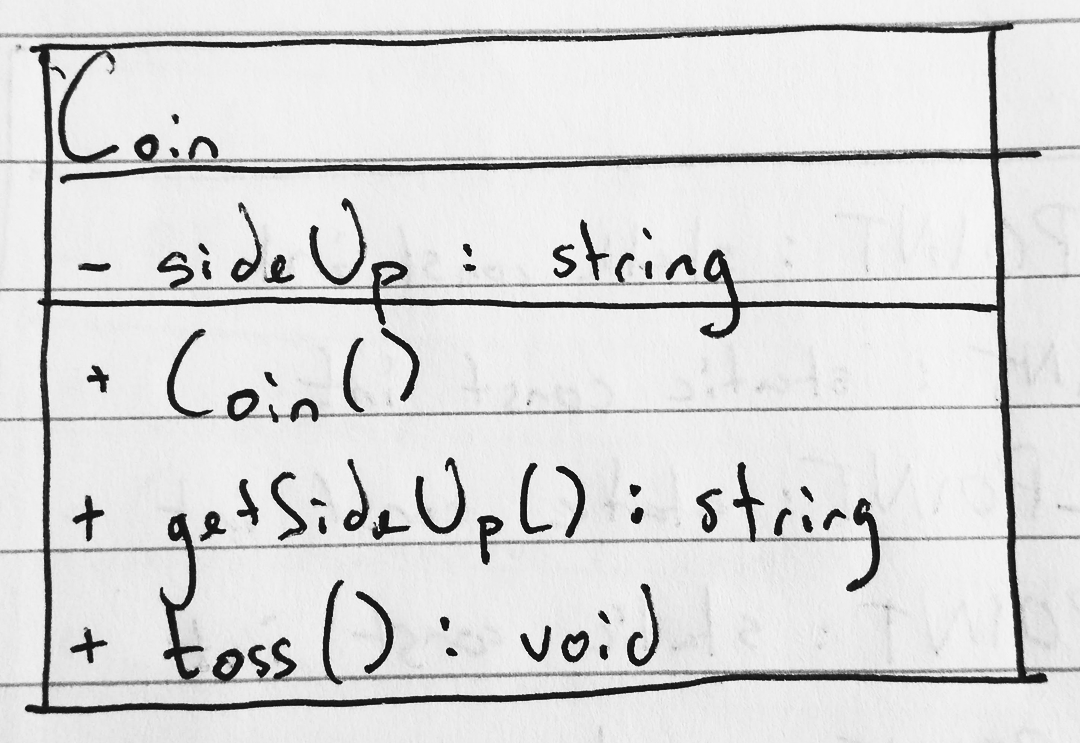 Coin
- sideUp : string
+ Coin()
+ getSideUp() : string
+ toss() : void